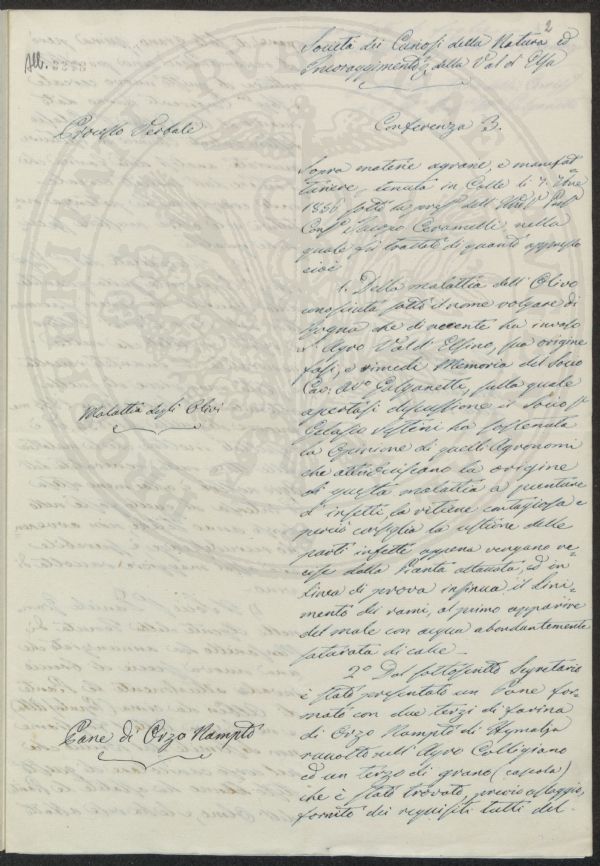 2
All.
Società dei Curiosi della Natura ed
Incoraggimento della Val d'Elsa
Processo Verbale
Conferenza 3.
Sopra materie agrarie, e manifat-
turiere, tenuta in Colle li 7.
1856 sotto la dell'
Ceramelli, nella
quale fu trattato di quanto appresso
cioè
1. Della malattia dell'Olivo
conosciuta sotto il nome volgare di
Rogna che di recente ha invaso
l'Agro Valdelsino, sua origine
fasi, e rimedi Memoria del Socio
Cav: Avv.o sulla quale
Malattia degli Olivi
apertasi discussione il Socio
Sestini ha sostenuta
la Opinione di quelli Agronomi
che attribuiscano la origine
di questa malattia a punture
d'insetti, la ritiene contagiosa e
perciò consiglia la ustione delle
parti infette appena vengano re-
cise dalla Pianta attaccata, ed in
linea di prova insinua il lini-
mento dei rami, al primo apparire
del male con acqua abondantemente
saturata di calce.
2.o Dal sottoscritto Segretario
è stato presentato un Pane for-
mato con due terzi di farina
Pane di Orzo Nampto
di Orzo Nampto di Hymalya
raccolto sull'Agro Colligiano
ed un terzo di grano (casola)
che è stato trovato, previo assaggio,
fornito dei requisiti tutti del-